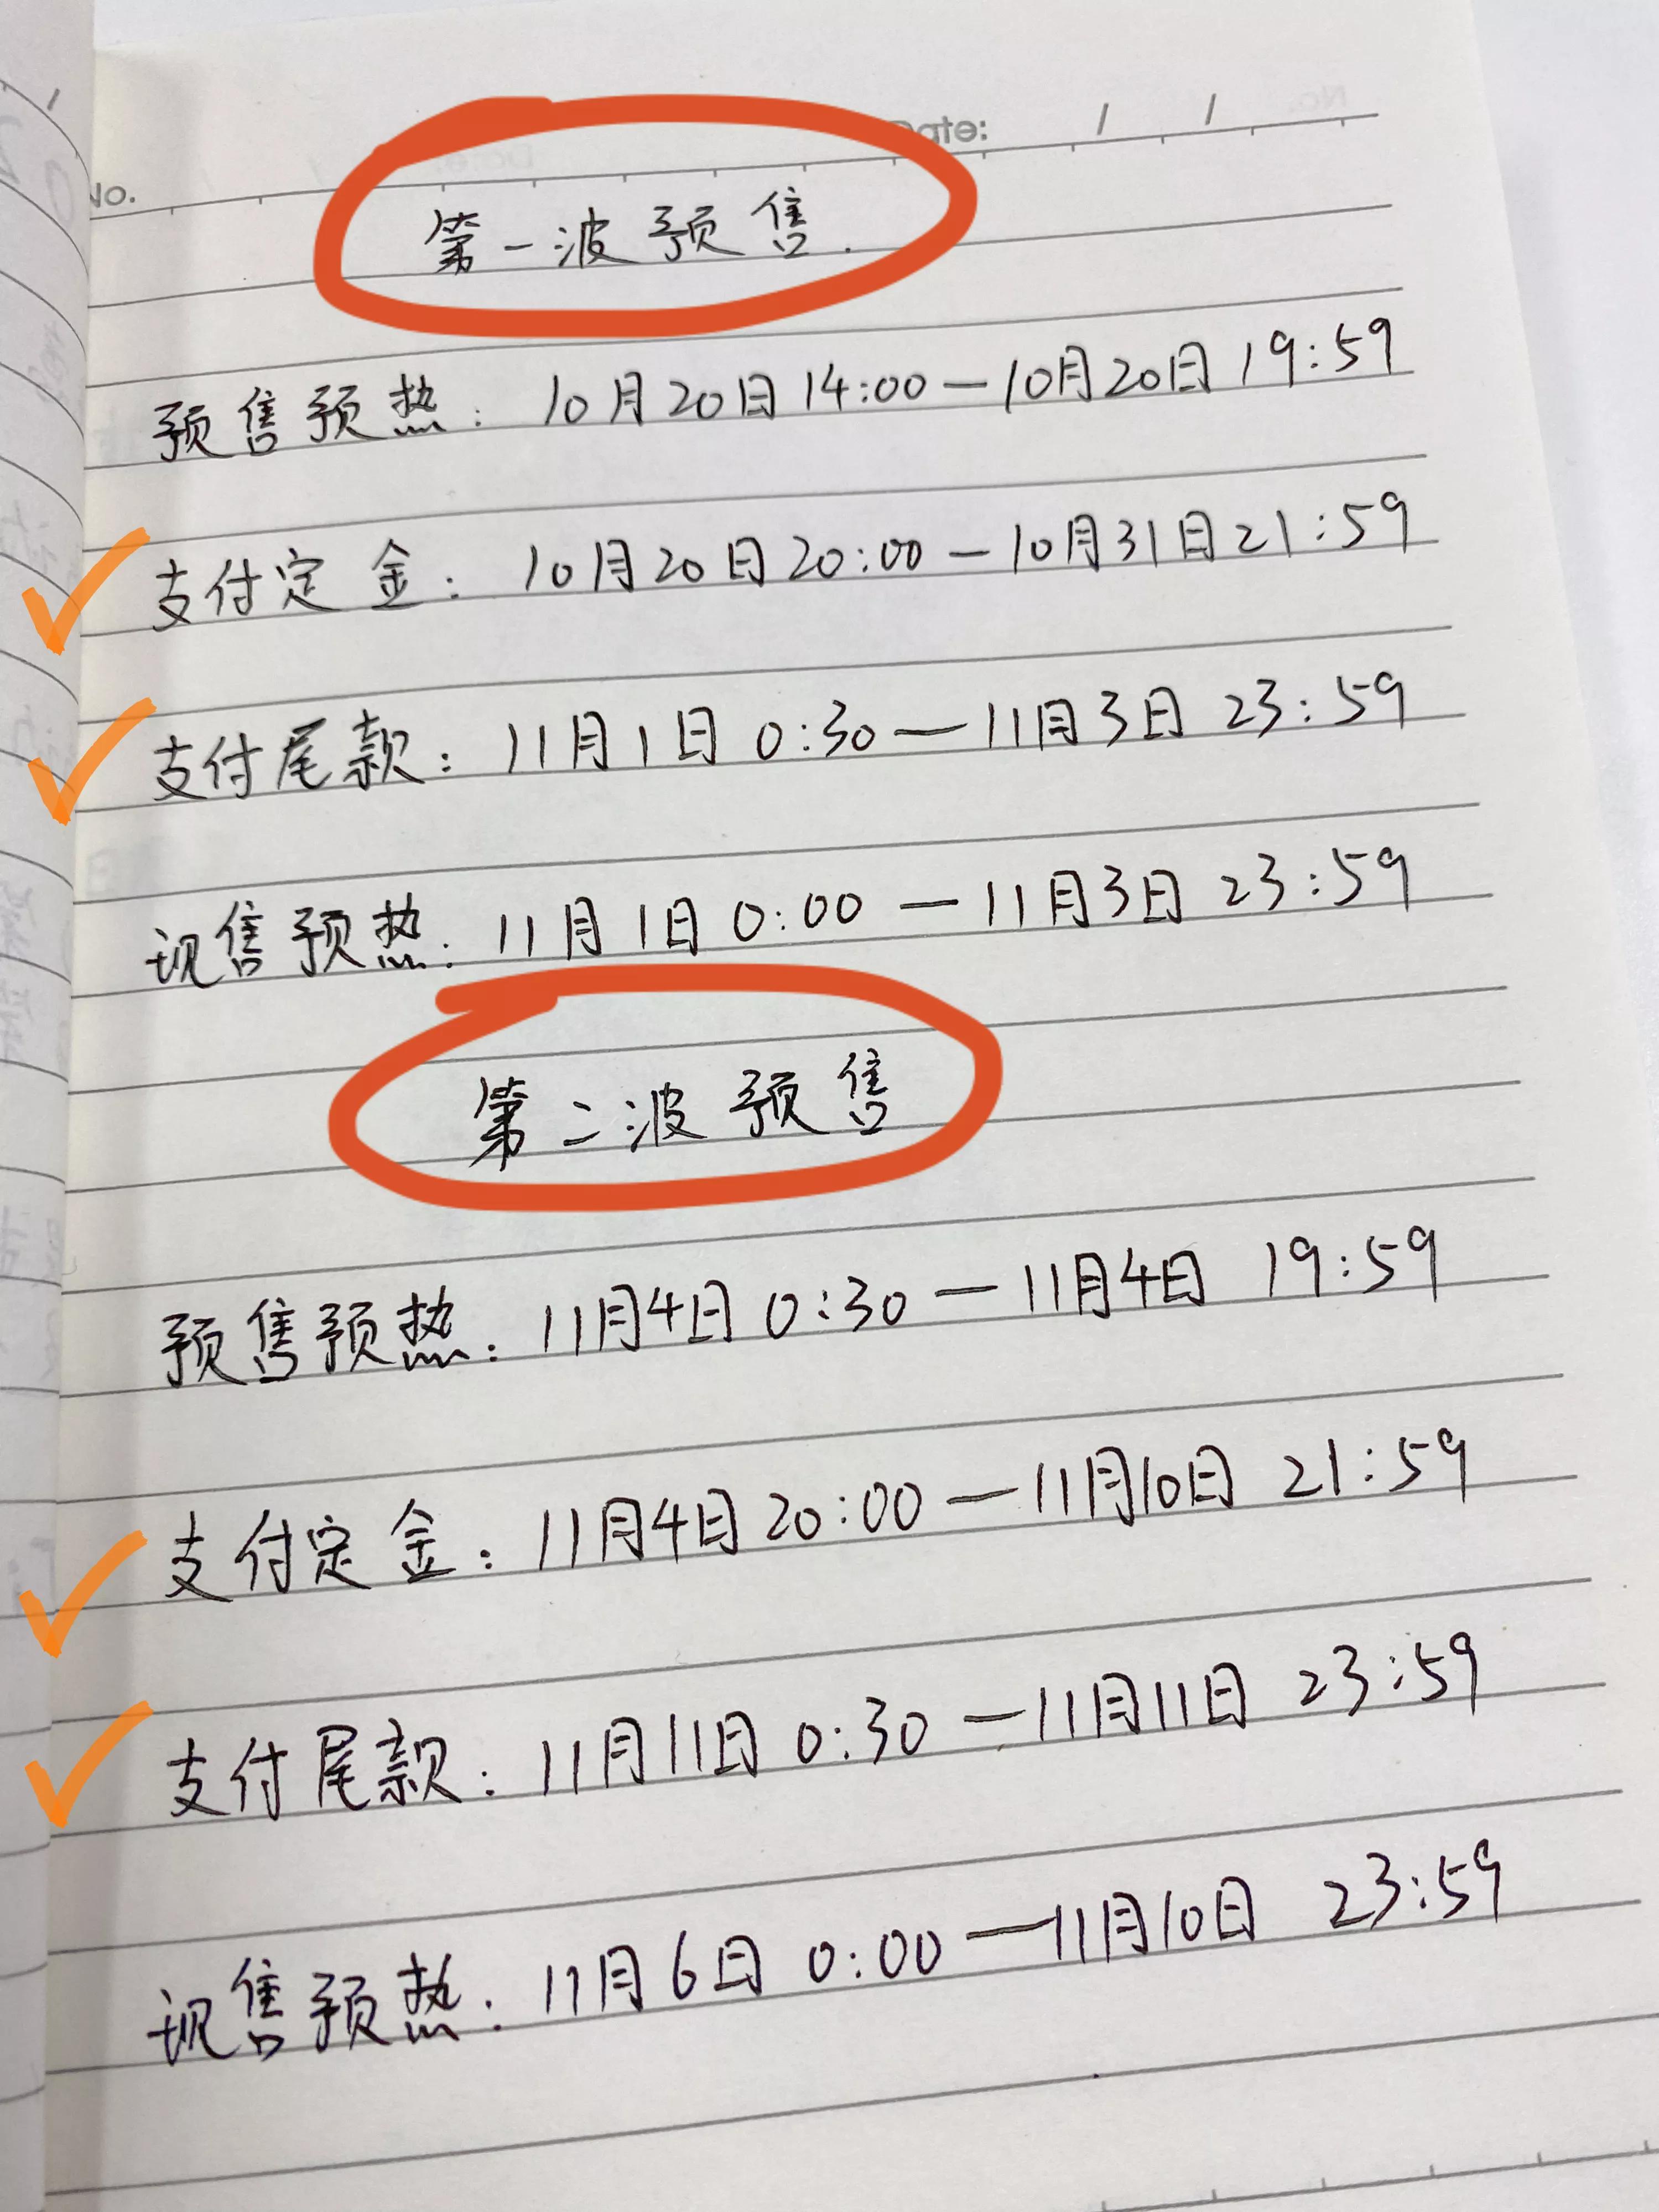 No.
Date: / /
第一波预售.
预售预热: 10月20日14:00—10月20日19:59
支付定金: 10月20日20:00—10月31日21:59
支付尾款: 11月1日 0:30—11月3日 23:59
现售预热: 11月1日 0:00—11月3日 23:59
第二波预售
预售预热: 11月4日 0:30—11月4日 19:59
支付定金: 11月4日 20:00—11月10日 21:59
支付尾款: 11月11日 0:30—11月11日 23:59
现售预热: 11月6日 0:00—11月10日 23:59